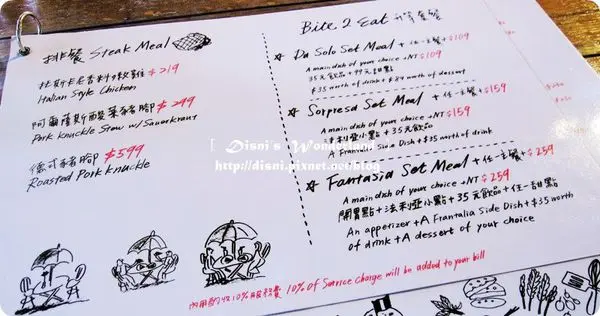 排餐 Steak Meal
托斯卡尼香料嫩雞 $219
Italian Style Chicken
阿爾薩斯酸菜豬腳 $299
Pork Knuckle Stew w/Sauerkraut
德式豬腳 $599
Roasted Pork Knuckle
Bite 2 Eat 升等套餐
Da Solo Set Meal + 任一主餐 + $109
A main dish of your choice + NT $109
35元飲品 + 99元甜點
$35 worth of drink + $99 worth of dessert
Sorpresa Set Meal + 任一主餐 + $159
A main dish of your choice + NT $159
法利啞小點 + 35元飲品
A Frantalia Side Dish + $35 worth of drink
Fantasia Set Meal + 任一主餐 + $259
A main dish of your choice + NT $259
開胃點 + 法利啞小點 + 35元飲品 + 任一甜點
An apperizer + A Frantalia Side Dish + $35 worth
of drink + A dessert of your choice
內用酌收10%服務費 10% of Service charge will be added to your bill
「 Disni's Wonderland
http://disni.pixnet.net/blog